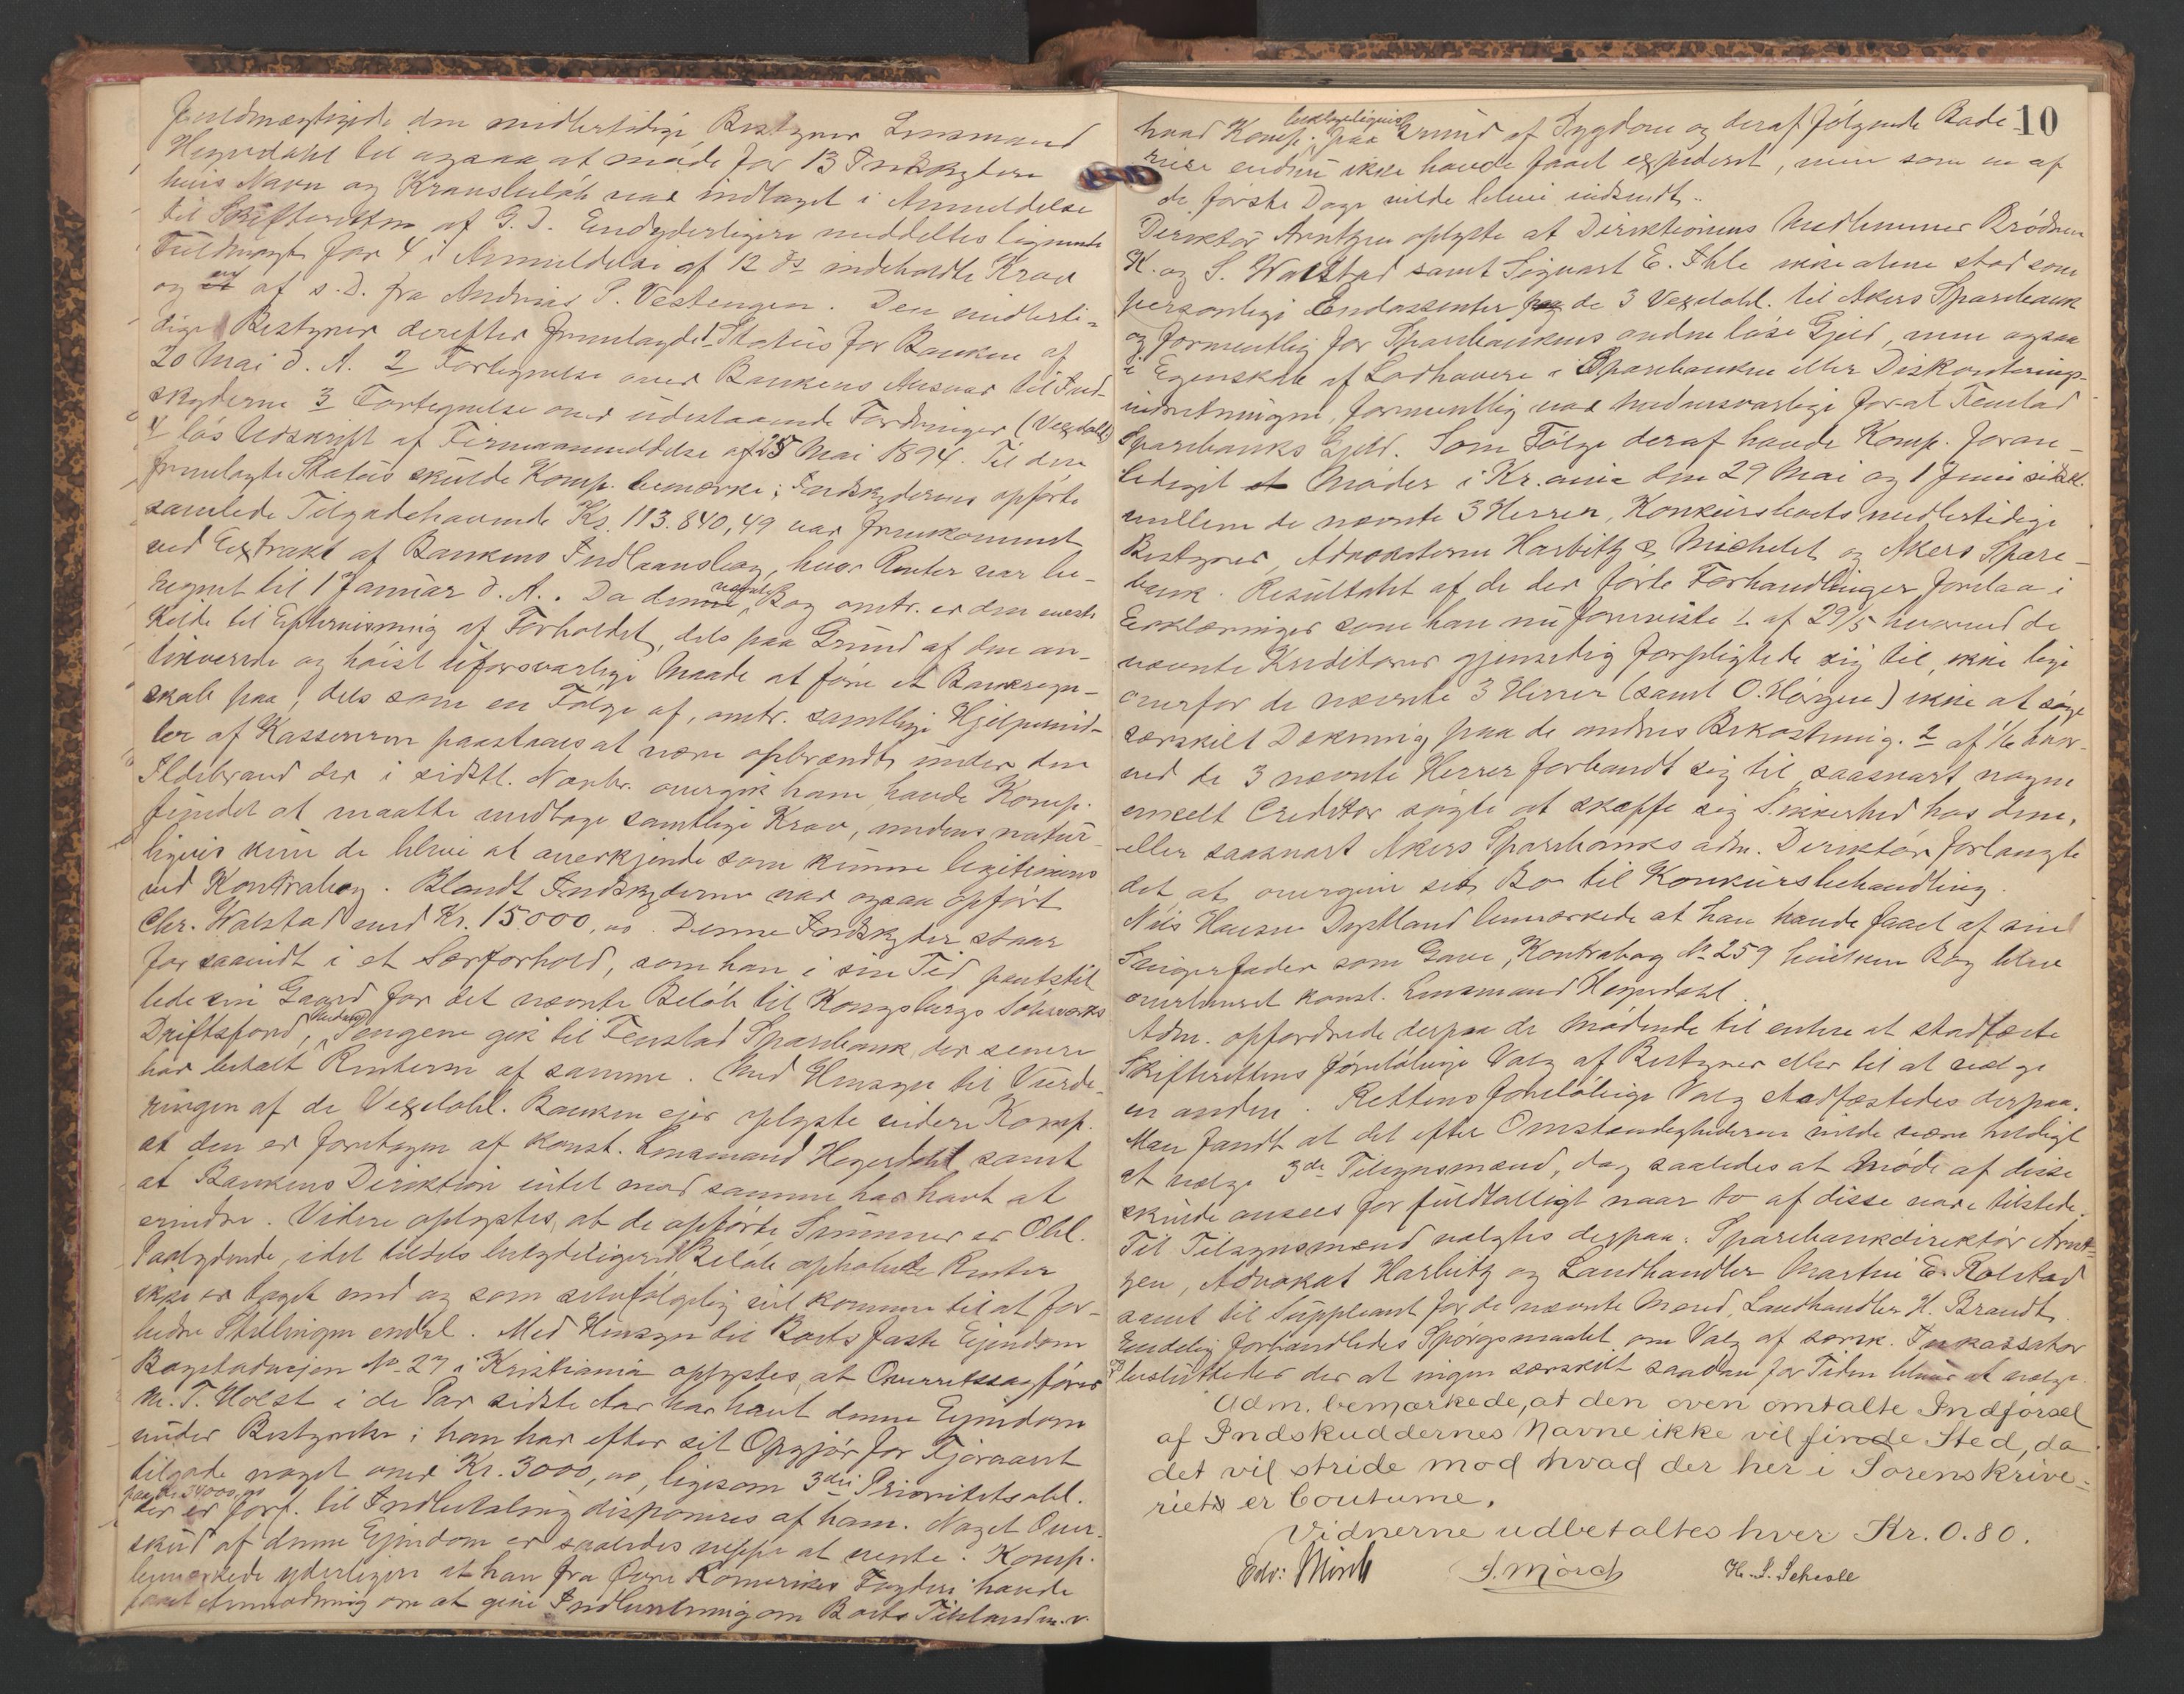 fuldmægtigede den midlertidige Bestyrer Lensmand
Hegerdahl til ogsaa at møde for 13 Indskydere
huis Navn og Kravsbeløb var indtaget i Anmeldelse
til Skifteretten af G. D. Endyderligere meddeltes lignende
Fuldmagt for 4 i Anmeldelse af 12 ds indeholdte Krav
og en af s. D. fra Andreas P. Vestengen. Den midlerti-
dige Bestyrer derefter fremlagde 1 Status for Banken af
20 Mai d. A. 2 Fortegnelse over Bankens Ansvar til Ind-
skyderne 3 Fortegnelse over udestaaende Fordringer (Vexelobl)
4 løs Udskrift af Firmaanmeldelse af 25 Mai 1894. Til den
fremlagte Status skulde Komp. bemærke: Indskydernes opførte
samlede Tilgodehavende Kr. 113.840,49 var fremkommet
ved Extrakt af Bankens Indlaansbog, hvor Renter var be-
regnet til 1 Januar d. A.. Da denne Bog omtr. er den eneste
Kilde til Efterviisning af Forholdet, dels paa Grund af den an-
linerende og høist uforsvarlige Maade at føre et Bankregn-
skab paa, dels som en Følge af, omtr. samtlige Hjelpemid-
ler af Kassereren paastaaes at være opbrændt under den
Ildebrand der i sidstl. Novbr. overgik ham, havde Komp.
fundet at maatte medtage samtlige Krav, medens natur-
ligvis kun de blive at anerkjende som kunne legitimeres
ved Kontrabog. Blandt Indskyderne var ogsaa opført
Chr. Walstad med Kr. 15.000,00. Denne Indskyder staar
for saavidt i et Særforhold, som han i sin Tid pantstil
lede sin Gaard for det nævnte Beløb til Kongsbergs Sølvværks
Driftsfond, Pengene gik til Fenstad Sparebank, der senere
har betalt Renterne af samme. Med Hensyn til Vurde-
ringen af de Vexelobl. Banken ejer oplyste videre Komp.
at den er foretagen af konst. Lensmand Hegerdahl samt
at Bankens Direktion intet mod samme har havt at
erindre. Videre oplystes, at de opførte Summer er Obl.
Paalydende, idet tildels betydeligere Beløb opholdte Renter
ikke er taget med og som selvfølgelig vil komme til at for-
bedre Stillingen endel. Med Hensyn til Boets faste Ejendom
Bogstadvejen No 27 i Kristiania oplystes, at Overretssagfører
M. T. Holst i de Par sidste Aar har havt denne Ejendom
under Bestyrelse; han har efter sit Opgjør for Fjoraaret
tilgode noget over Kr. 3000,00, ligesom 3die Prioritetsobl.
paa Kr. 34000,00
der er forf. til Indbetaling disponeres af ham. Noget Over-
skud af denne Ejendom er saaledes neppe at vente. Komp.
bemærkede yderligere at han fra Øvre Romerikes Fogderi havde
faaet Anmodning om at give Indberetning om Boets Tilstand m. v.
10
hvad Komp. beklageligvis paa Grund af Sygdom og deraf følgende Bade-
reise endnu ikke havde faaet expederet, men som en af
de første Dage vilde blive indsendt.
Direktør Arntzen oplyste at Direktionens Medlemmer Brødrene
K. og S. Walstad samt Sigvart E. Ihle ikke alene stod som
personlige Endossenter paa de 3 Vexelobl. til Akers Sparebank
og formentlig for Sparebankens anden løse Gjeld, men ogsaa
i Egenskab af Lodhavere i Sparebanken eller Diskonterings-
indretningen, formentlig var medansvarlige for at Fenstad
Sparebanks Gjeld. Som Følge deraf havde Komp. foran-
lediget Møder i Kr.ania den 29 Mai og 1 Juni sidstl.
mellem de nævnte 3 Herrer, Konkursboets midlertidige
Bestyrer, Advokaterne Harbitz & Michelet og Akers Spare-
bank. Resultatet af de der førte Forhandlinger forelaa i
Erklæringer som han nu foreviste 1. af 29/5 hvorved de
nævnte Kreditorer gjensidig forpligtede sig til ikke lige
overfor de nævnte 3 Herrer (samt O. Horgen) ikke at søge
særskilt Dækning paa de andres Bekostning. 2 af 1/6 hvor-
ved de 3 nævnte Herrer forbandt sig til, saasnart nogen
enkelt Creditor søgte at skaffe sig Sikkerhed hos dem,
eller saasnart Akers Sparebanks adm. Direktør forlangte
det at overgive sit Bo til Konkursbehandling.
Nils Hansen Dystland bemærkede at han havde faaet af sin
Svigerfader som Gave, Kontrabog No 259 hvilken Bog blev
overleveret konst. Lensmand Hegerdahl.
Adm. opfordrede derpaa de Mødende til enten at stadfæste
Skifterettens foreløbige Valg af Bestyrer eller til at vælge
en anden. Rettens foreløbige Valg stadfæstedes derpaa.
Man fandt at det efter Omstændighederne vilde være heldigt
at vælge 3de Tilsynsmænd, dog saaledes at Møde af disse
skulde ansees for fuldtalligt naar to af disse vare tilstede.
Til Tilsynsmænd valgtes derpaa: Sparebankdirektør Arnt-
zen, Advokat Harbitz og Landhandler Martin E. Rolstad
samt til Suppleant for de nævnte Mænd, Landhandler H. Brandt.
Endelig forhandledes Spørgsmaalet om Valg af særsk. Inkassator
besluttedes der at ingen særskilt saadan for Tiden bliver at vælge.
Adm. bemærkede, at den oven omtalte Indførsel
af Indskuddernes Navne ikke vil finde Sted, da
det vil stride mod hvad der her i Sorenskrive-
riet er Coutume.
Vidnerne udbetaltes hver Kr. 0.80.
Edv: Mörch S. Mörch H. S. Schesle